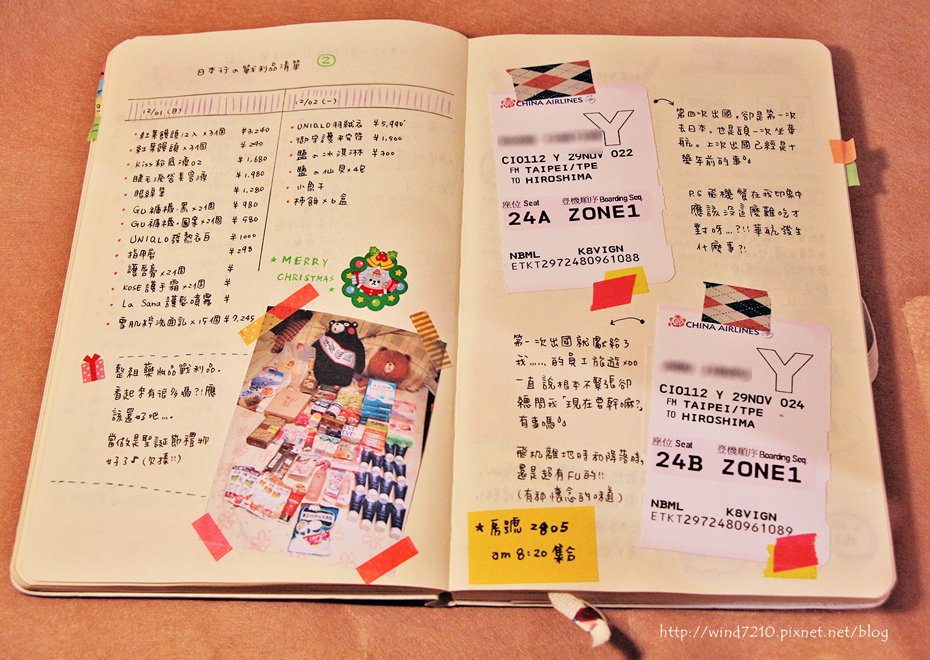 日本行の戰利品清單 ②
12/01 (日)
• 紅葉饅頭12入×3個 ¥3,240
• 紅葉饅頭×3個 ¥290
• Kiss粉底液02 ¥1,680
• 睫毛液 ¥1,980
• 眼線筆 ¥1,280
• GU褲襪・黑×21個 ¥980
• GU褲襪・圖案×2個 ¥580
• UNIQLO發熱衣白 ¥1000
• 指甲 ¥298
• 護唇膏×21個 ¥
• KOSE護手霜×21個 ¥
• La Sana護髮噴霧 ¥
• 雪肌粹洗面乳×15個 ¥7,245
12/02 (一)
• UNIQLO羽絨衣 ¥5,990
• 御守護平安符 ¥1,500
• 鹽の冰淇淋 ¥300
• 鹽の仙貝×4包
• 小魚干
• 柿餅×6盒
★ MERRY
CHRISTMAS ★
整組藥妝品戰利品.
看起來有很多嗎?!應
該還好吧….
當做是聖誕節禮物
好了♪(欠揍!!)
CHINA AIRLINES
Y
CI0112 Y 29NOV 022
FM TAIPEI/TPE
TO HIROSHIMA
座位 Seat 登機順序 Boarding Seq.
24A ZONE1
NBML K8VIGN
ETKT2972480961088
第四次出國,卻是第一次
去日本,也是頭一次坐華
航。上次出國已經是十
幾年前的事。
P.S 飛機餐在我印象中
應該沒這麼難吃才
對呀…?!!華航發生
什麼事?!
第一次出國就獻給了
我……的員工旅遊XDD
一直說根本不緊張卻
總問我「現在要幹嘛?」
有事嗎。
飛机離地時和降落時,
還是超有Fu的!!
(有种懷念的味道)
CHINA AIRLINES
Y
CI0112 Y 29NOV 024
FM TAIPEI/TPE
TO HIROSHIMA
座位 Seat 登機順序 Boarding Seq.
24B ZONE1
NBML K8VIGN
ETKT2972480961089
★ 房號 2805
am 8:20 集合
http://wind7210.pixnet.net/blog